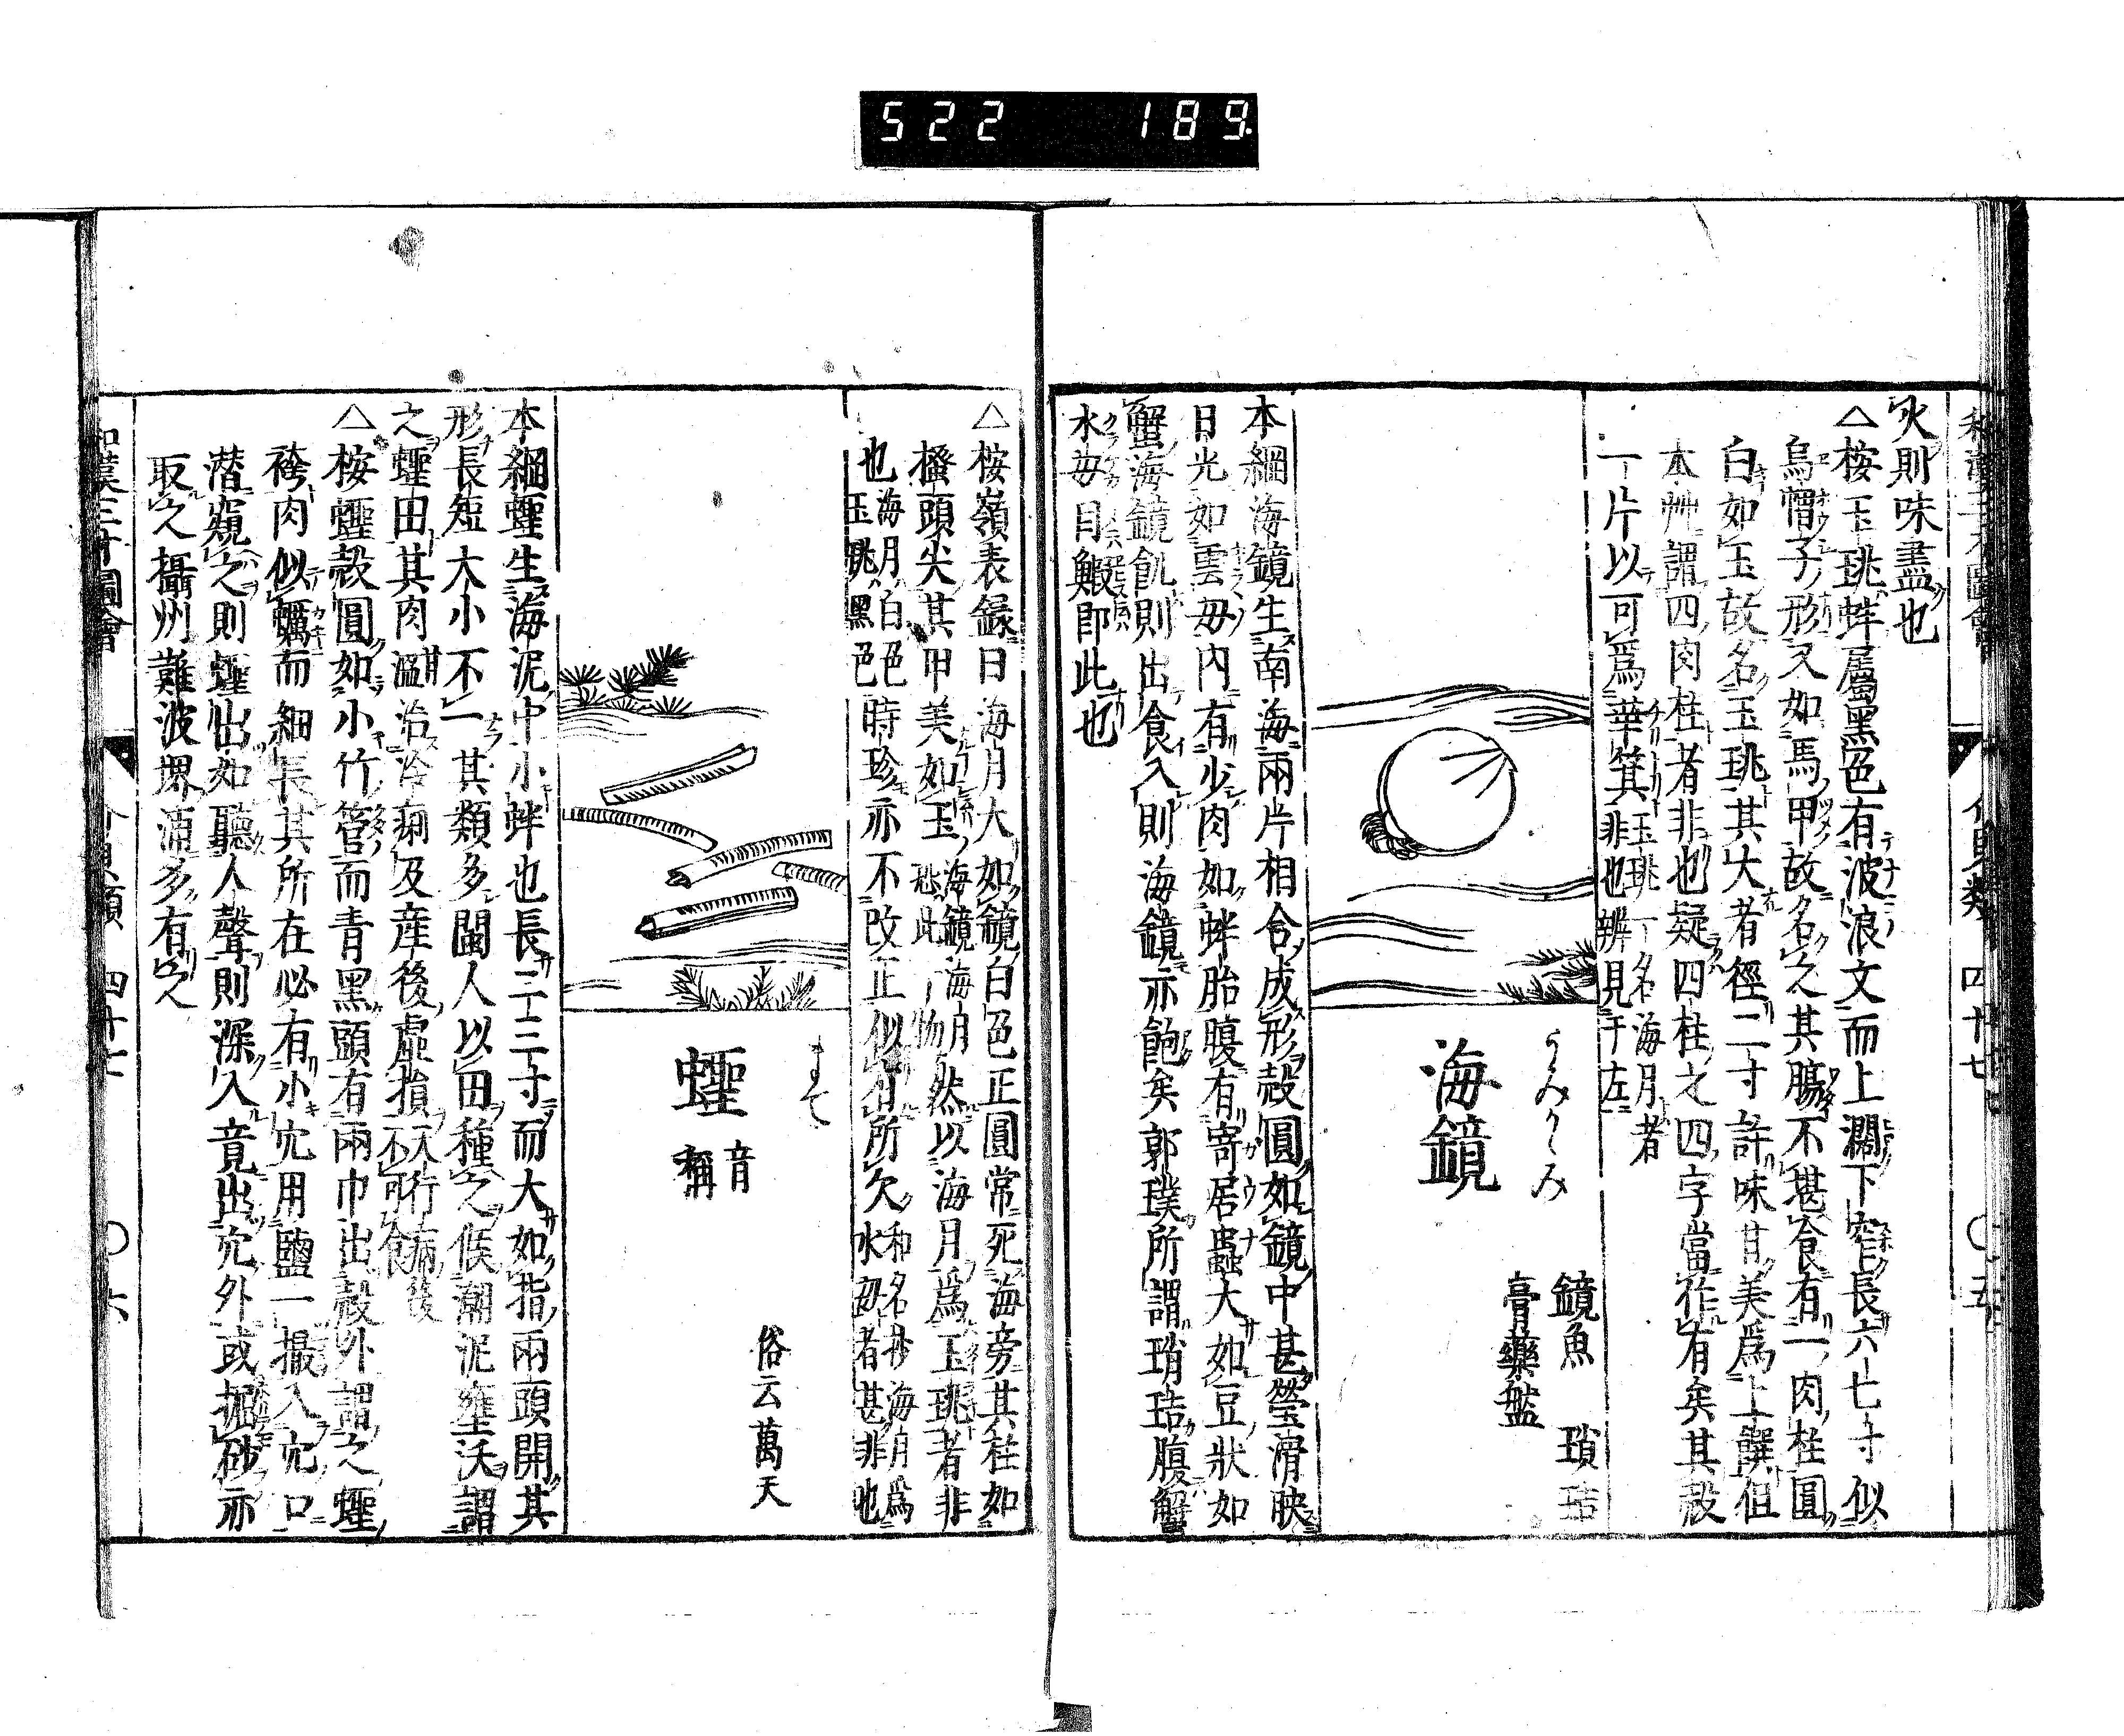 522 189
火則味盡也
△桉玉珧蚌屬黑色有波浪文而上濶下窄長六七寸似
烏帽子形又如馬甲故名之其腸不堪食有一肉柱圓
白如玉故名玉珧其大者徑二寸許味甘美爲上饌但
本艸謂四肉柱者非也疑四柱之四字當作有矣其殻
一片以可爲華箕玉珧一名海月者
非也辨見于左
海鏡
うみかゝみ
鏡魚 瑣琂
膏藥盤
本綱海鏡生南海兩片相合成形殻圓如鏡中甚瑩滑映
日光如雲毋内有少肉如蚌胎腹有寄居蟲大如豆狀如
蟹海鏡飢則出食入則海鏡亦飽矣郭璞所謂瑣琂腹蟹
水毋目鰕即此也
△桉嶺表錄曰海月大如鏡白色正圓常死海旁其柱如
搔頭尖其甲美如玉海鏡海月
恐此一物然以海月爲玉珧者非
也海月白色
玉珧黑色時珍亦不改正似有所欠和名抄海月爲
水毋者甚非也
まて
蟶
音
稱
俗云萬天
本綱蟶生海泥中小蚌也長二三寸而大如指兩頭開其
形長短大小不一其類多閩人以田種之候潮泥壅沃謂
之蟶田其肉甘
溫治冷痢及産後虛損天行病後
不可食
△桉蟶殻圓如小竹管而青黑頭有兩巾出殻外謂之蟶
袴肉似蠣而細長其所在必有小穴用鹽一撮入穴口
潜窺之則蟶出如聽人聲則深入竟出穴外或掘砂亦
取之攝州難波堺浦多有之
和漢三才圖會
介貝類 四十七 〇五
和漢三才圖會
介貝類 四十七 〇六